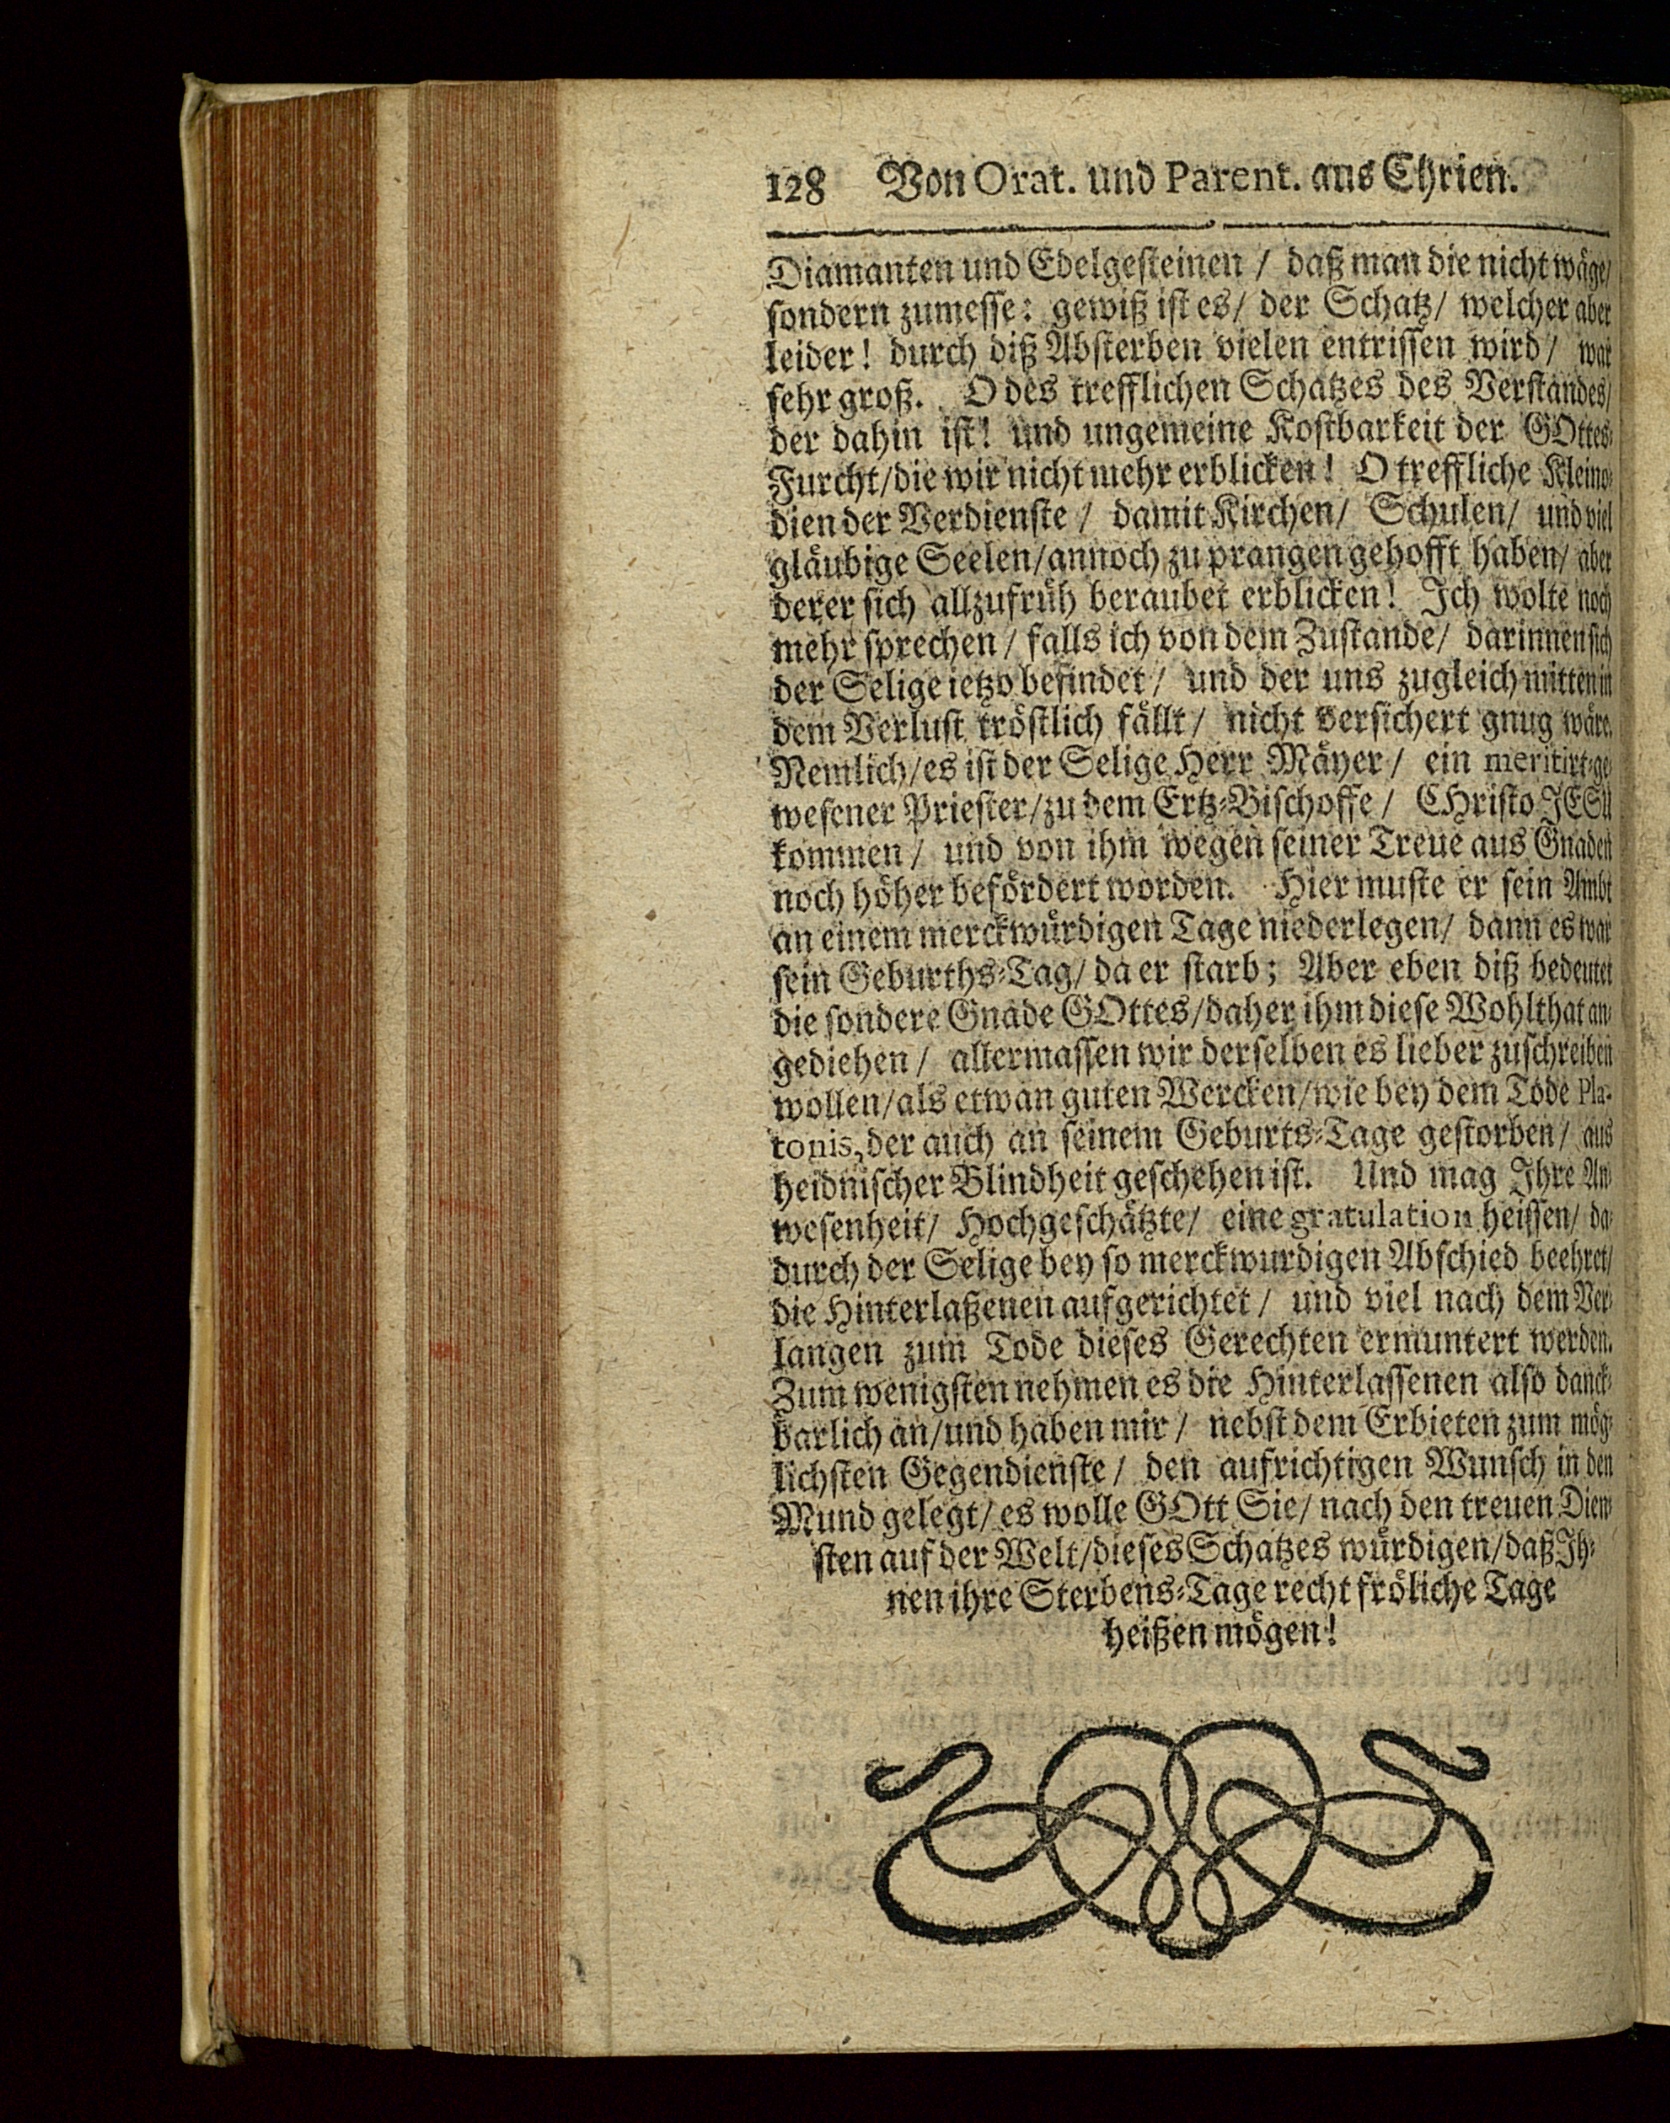 128 Von Orat. und Parent. aus Chrien.
Diamanten und Edelgesteinen / daß man die nicht wäge/
sondern zumesse: gewiß ist es/ der Schatz/ welcher aber
leider! durch diß Absterben vielen entrissen wird/ war
sehr groß. O des trefflichen Schatzes des Verstandes/
der dahin ist! und ungemeine Kostbarkeit der GOttes-
Furcht/die wir nicht mehr erblicken! O treffliche Kleino-
dien der Verdienste / damit Kirchen/ Schulen/ und viel
gläubige Seelen/annoch zu prangen gehofft haben/ aber
derer sich allzufrüh beraubet erblicken! Ich wolte noch
mehr sprechen / falls ich von dem Zustande/ darinnen sich
der Selige ietzo befindet/ und der uns zugleich mitten in
dem Verlust tröstlich fällt/ nicht versichert gnug wäre.
Nemlich/es ist der Selige Herr Mäyer/ ein meritirt-ge-
wesener Priester/zu dem Ertz-Bischoffe / CHristo JESU
kommen / und von ihm wegen seiner Treue aus Gnaden
noch höher befördert worden. Hier muste er sein Ambt
an einem merckwürdigen Tage niederlegen/ dann es war
sein Geburths-Tag/ da er starb; Aber eben diß bedeutet
die sondere Gnade GOttes/daher ihm diese Wohlthat an-
gediehen / allermassen wir derselben es lieber zuschreiben
wollen/als etwan guten Wercken/wie bey dem Tode Pla-
tonis, der auch an seinem Geburts-Tage gestorben/ aus
heidnischer Blindheit geschehen ist. Und mag Ihre An-
wesenheit/ Hochgeschätzte/ eine gratulation heissen/ da-
durch der Selige bey so merckwurdigen Abschied beehret/
die Hinterlaßenen aufgerichtet / und viel nach dem Ver-
langen zum Tode dieses Gerechten ermuntert werden.
Zum wenigsten nehmen es die Hinterlassenen also danck-
barlich an/und haben mir / nebst dem Erbieten zum mög-
lichsten Gegendienste / den aufrichtigen Wunsch in den
Mund gelegt/ es wolle GOtt Sie/ nach den treuen Dien-
sten auf der Welt/dieses Schatzes würdigen/daß Ih-
nen ihre Sterbens-Tage recht fröliche Tage
heißen mögen!